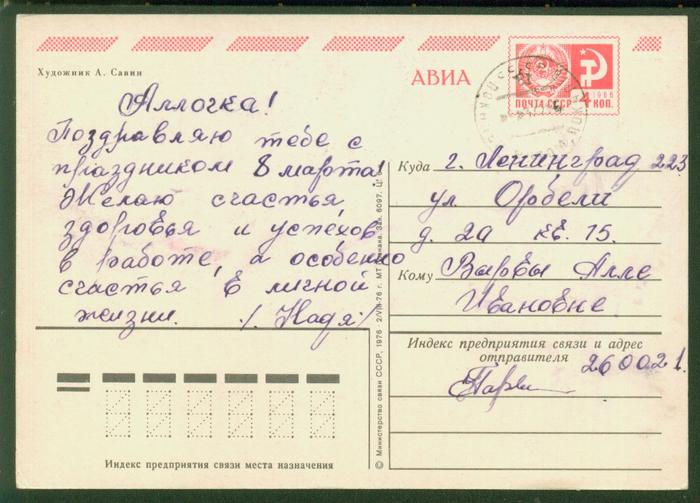 Художник А. Савин
АВИА
ПОЧТА СССР
1966
4 КОП.
Аллочка!
Поздравляю тебе с
праздником 8 марта!
Желаю счастья,
здоровья и успехов
в работе, а особенно
счастья в личной
жизни. /Надя/
Куда г. Ленинград 223
ул Орбели
д. 2а кв. 15.
Кому
Алле
Ивановне
Индекс предприятия связи и адрес
отправителя 260021.
Индекс предприятия связи места назначения
© Министерство связи СССР, 1976 2/VIII-76 г. МТ Гознака. Зак. 6097. Ц.